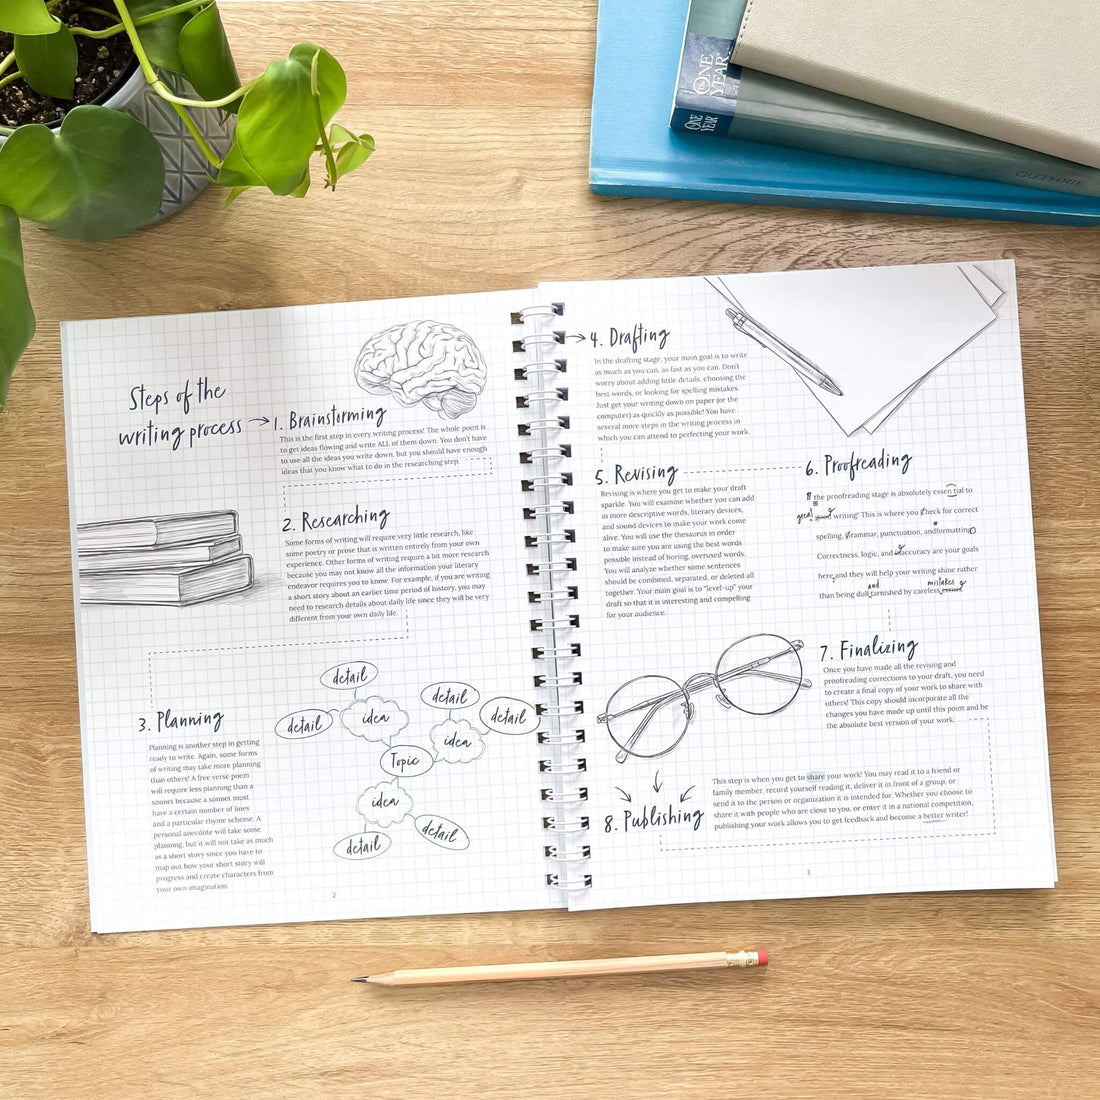 The
ONE
YEAR
ONE
YEAR
GUTHRIE
Steps of the
writing process
1. Brainstorming
This is the first step in every writing process! The whole point is
to get ideas flowing and write ALL of them down. You don't have
to use all the ideas you write down, but you should have enough
ideas that you know what to do in the researching step.
2. Researching
Some forms of writing will require very little research, like
some poetry or prose that is written entirely from your own
experience. Other forms of writing require a bit more research
because you may not know all the information your literary
endeavor requires you to know. For example, if you are writing
a short story about an earlier time period of history, you may
need to research details about daily life since they will be very
different from your own daily life.
3. Planning
Planning is another step in getting
ready to write. Again, some forms
of writing may take more planning
than others! A free verse poem
will require less planning than a
sonnet because a sonnet must
have a certain number of lines
and a particular rhyme scheme. A
personal anecdote will take some
planning, but it will not take as much
as a short story since you have to
map out how your short story will
progress and create characters from
your own imagination.
detail
detail
idea
detail
detail
idea
Topic
idea
detail
detail
2
4. Drafting
In the drafting stage, your main goal is to write
as much as you can, as fast as you can. Don't
worry about adding little details, choosing the
best words, or looking for spelling mistakes.
Just get your writing down on paper (or the
computer) as quickly as possible! You have
several more steps in the writing process in
which you can attend to perfecting your work.
5. Revising
Revising is where you get to make your draft
sparkle. You will examine whether you can add
in more descriptive words, literary devices,
and sound devices to make your work come
alive. You will use the thesaurus in order
to make sure you are using the best words
possible instead of boring, overused words.
You will analyze whether some sentences
should be combined, separated, or deleted all
together. Your main goal is to "level-up" your
draft so that it is interesting and compelling
for your audience.
6. Proofreading
the proofreading stage is absolutely essen tial to
great good writing! This is where you Check for correct
spelling, Grammar, punctuation, andformatting
Correctness, logic, and accuracy are your goals
here, and they will help your writing shine rather
and mistakes
than being dull tarnished by careless
7. Finalizing
Once you have made all the revising and
proofreading corrections to your draft, you need
to create a final copy of your work to share with
others! This copy should incorporate all the
changes you have made up until this point and be
the absolute best version of your work.
8. Publishing
This step is when you get to share your work! You may read it to a friend or
family member, record yourself reading it, deliver it in front of a group, or
send it to the person or organization it is intended for. Whether you choose to
share it with people who are close to you, or enter it in a national competition,
publishing your work allows you to get feedback and become a better writer!
3